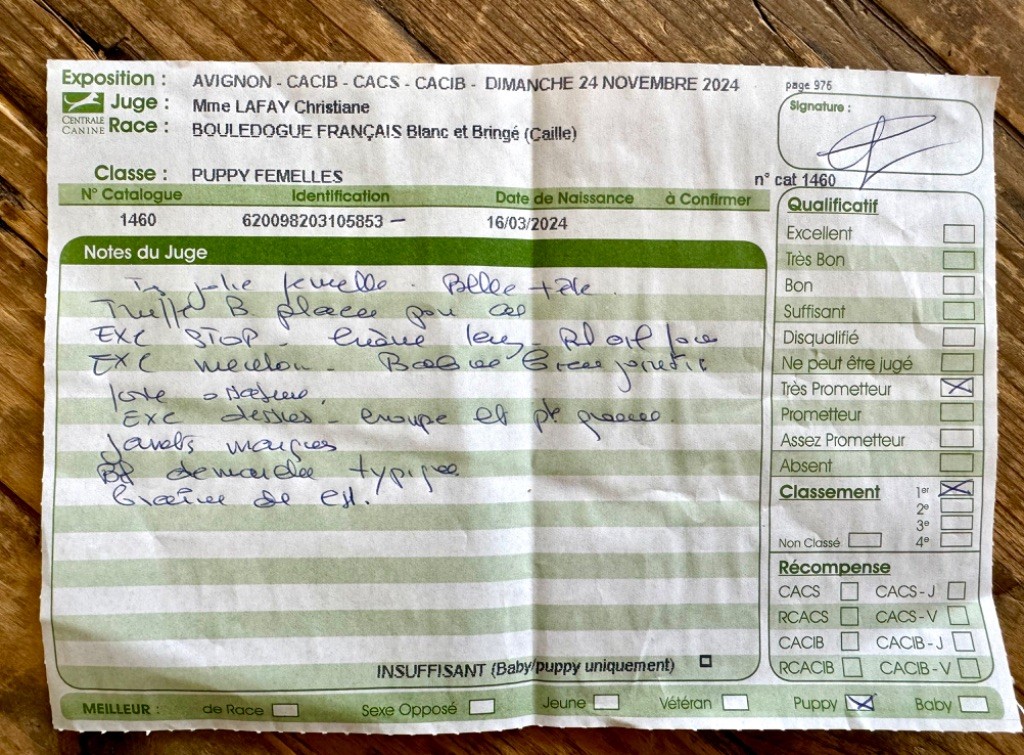 Exposition : AVIGNON - CACIB - CACS - CACIB - DIMANCHE 24 NOVEMBRE 2024
page 976
CENTRALE CANINE
Juge : Mme LAFAY Christiane
Signature :
Race : BOULEDOGUE FRANÇAIS Blanc et Bringé (Caille)
Classe : PUPPY FEMELLES
n° cat 1460
N° Catalogue Identification Date de Naissance à Confirmer
1460 620098203105853 – 16/03/2024
Notes du Juge
jolie femelle. Belle tête.
Truffe B placée
EXC STOP -
EXC menton.
EXC dessus - croupe et
Jarrets
typique
INSUFFISANT (Baby/puppy uniquement)
Qualificatif
Excellent
Très Bon
Bon
Suffisant
Disqualifié
Ne peut être jugé
Très Prometteur
Prometteur
Assez Prometteur
Absent
Classement 1er
2e
3e
Non Classé 4e
Récompense
CACS CACS - J
RCACS CACS - V
CACIB CACIB - J
RCACIB CACIB - V
MEILLEUR : de Race Sexe Opposé Jeune Vétéran Puppy Baby